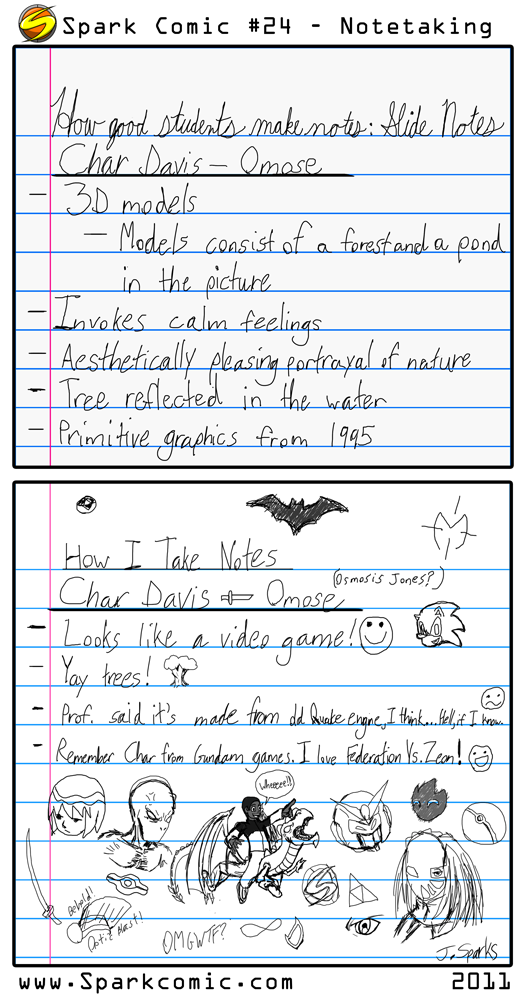 Spark Comic #24 - Notetaking
How good students make notes: Slide Notes
Char Davis – Omose
- 3D models
- Models consist of a forest and a pond
in the picture
- Invokes calm feelings
- Aesthetically pleasing portrayal of nature
- Tree reflected in the water
- Primitive graphics from 1995
How I Take Notes
(Osmosis Jones?)
Char Davis Omose
- Looks like a video game!
- Yay trees!
- Prof. said it's made from old Quake engine, I think... Hell, if I know.
- Remember Char from Gundam games. I love Federation Vs. Zeon!
Wheeeee!!
Behold!
Optic Blast!
OMGWTF?
J. Sparks
www.Sparkcomic.com
2011